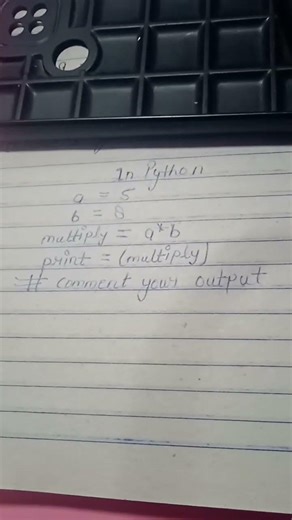 In Python
a = 5
b = 8
multiply = a*b
print = (multiply)
# comment your output